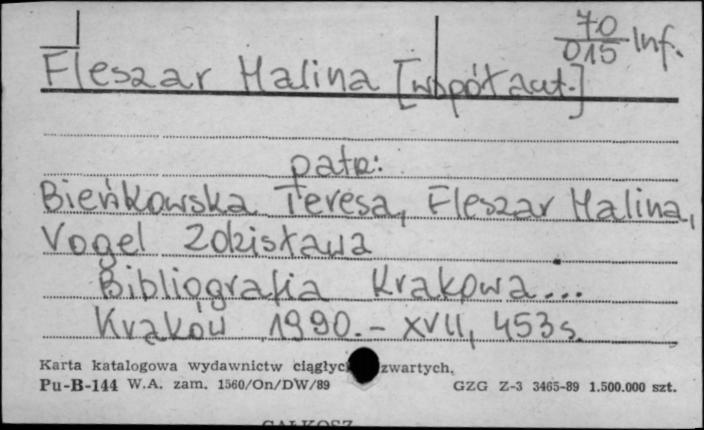 70
015 Inf.
Fleszar Halina [współaut.]
patrz:
Bieńkowska Teresa, Fleszar Halina,
Vogel Zdzisława
Bibliografia Krakowa...
Kraków 1990. - XVII, 453 s.
Karta katalogowa wydawnictw ciągłyc zwartych.
Pu-B-144 W.A. zam. 1560/On/DW/89 GZG Z-3 3465-89 1.500.000 szt.